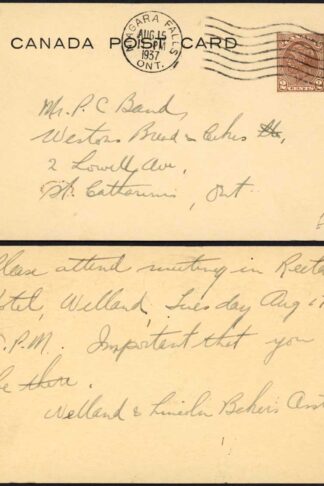 CANADA POST CARD
NIAGARA FALLS
AUG 15
PM
1937
ONT.
CENTS
Mr. P. C Band
Westons Bread & Cakes
2 Lowell Ave,
St. Catharines, Ont
Please attend meeting in
Hotel, Welland, Tuesday Aug
P.M. Important that you
be there.
Welland & Lincoln Bakers